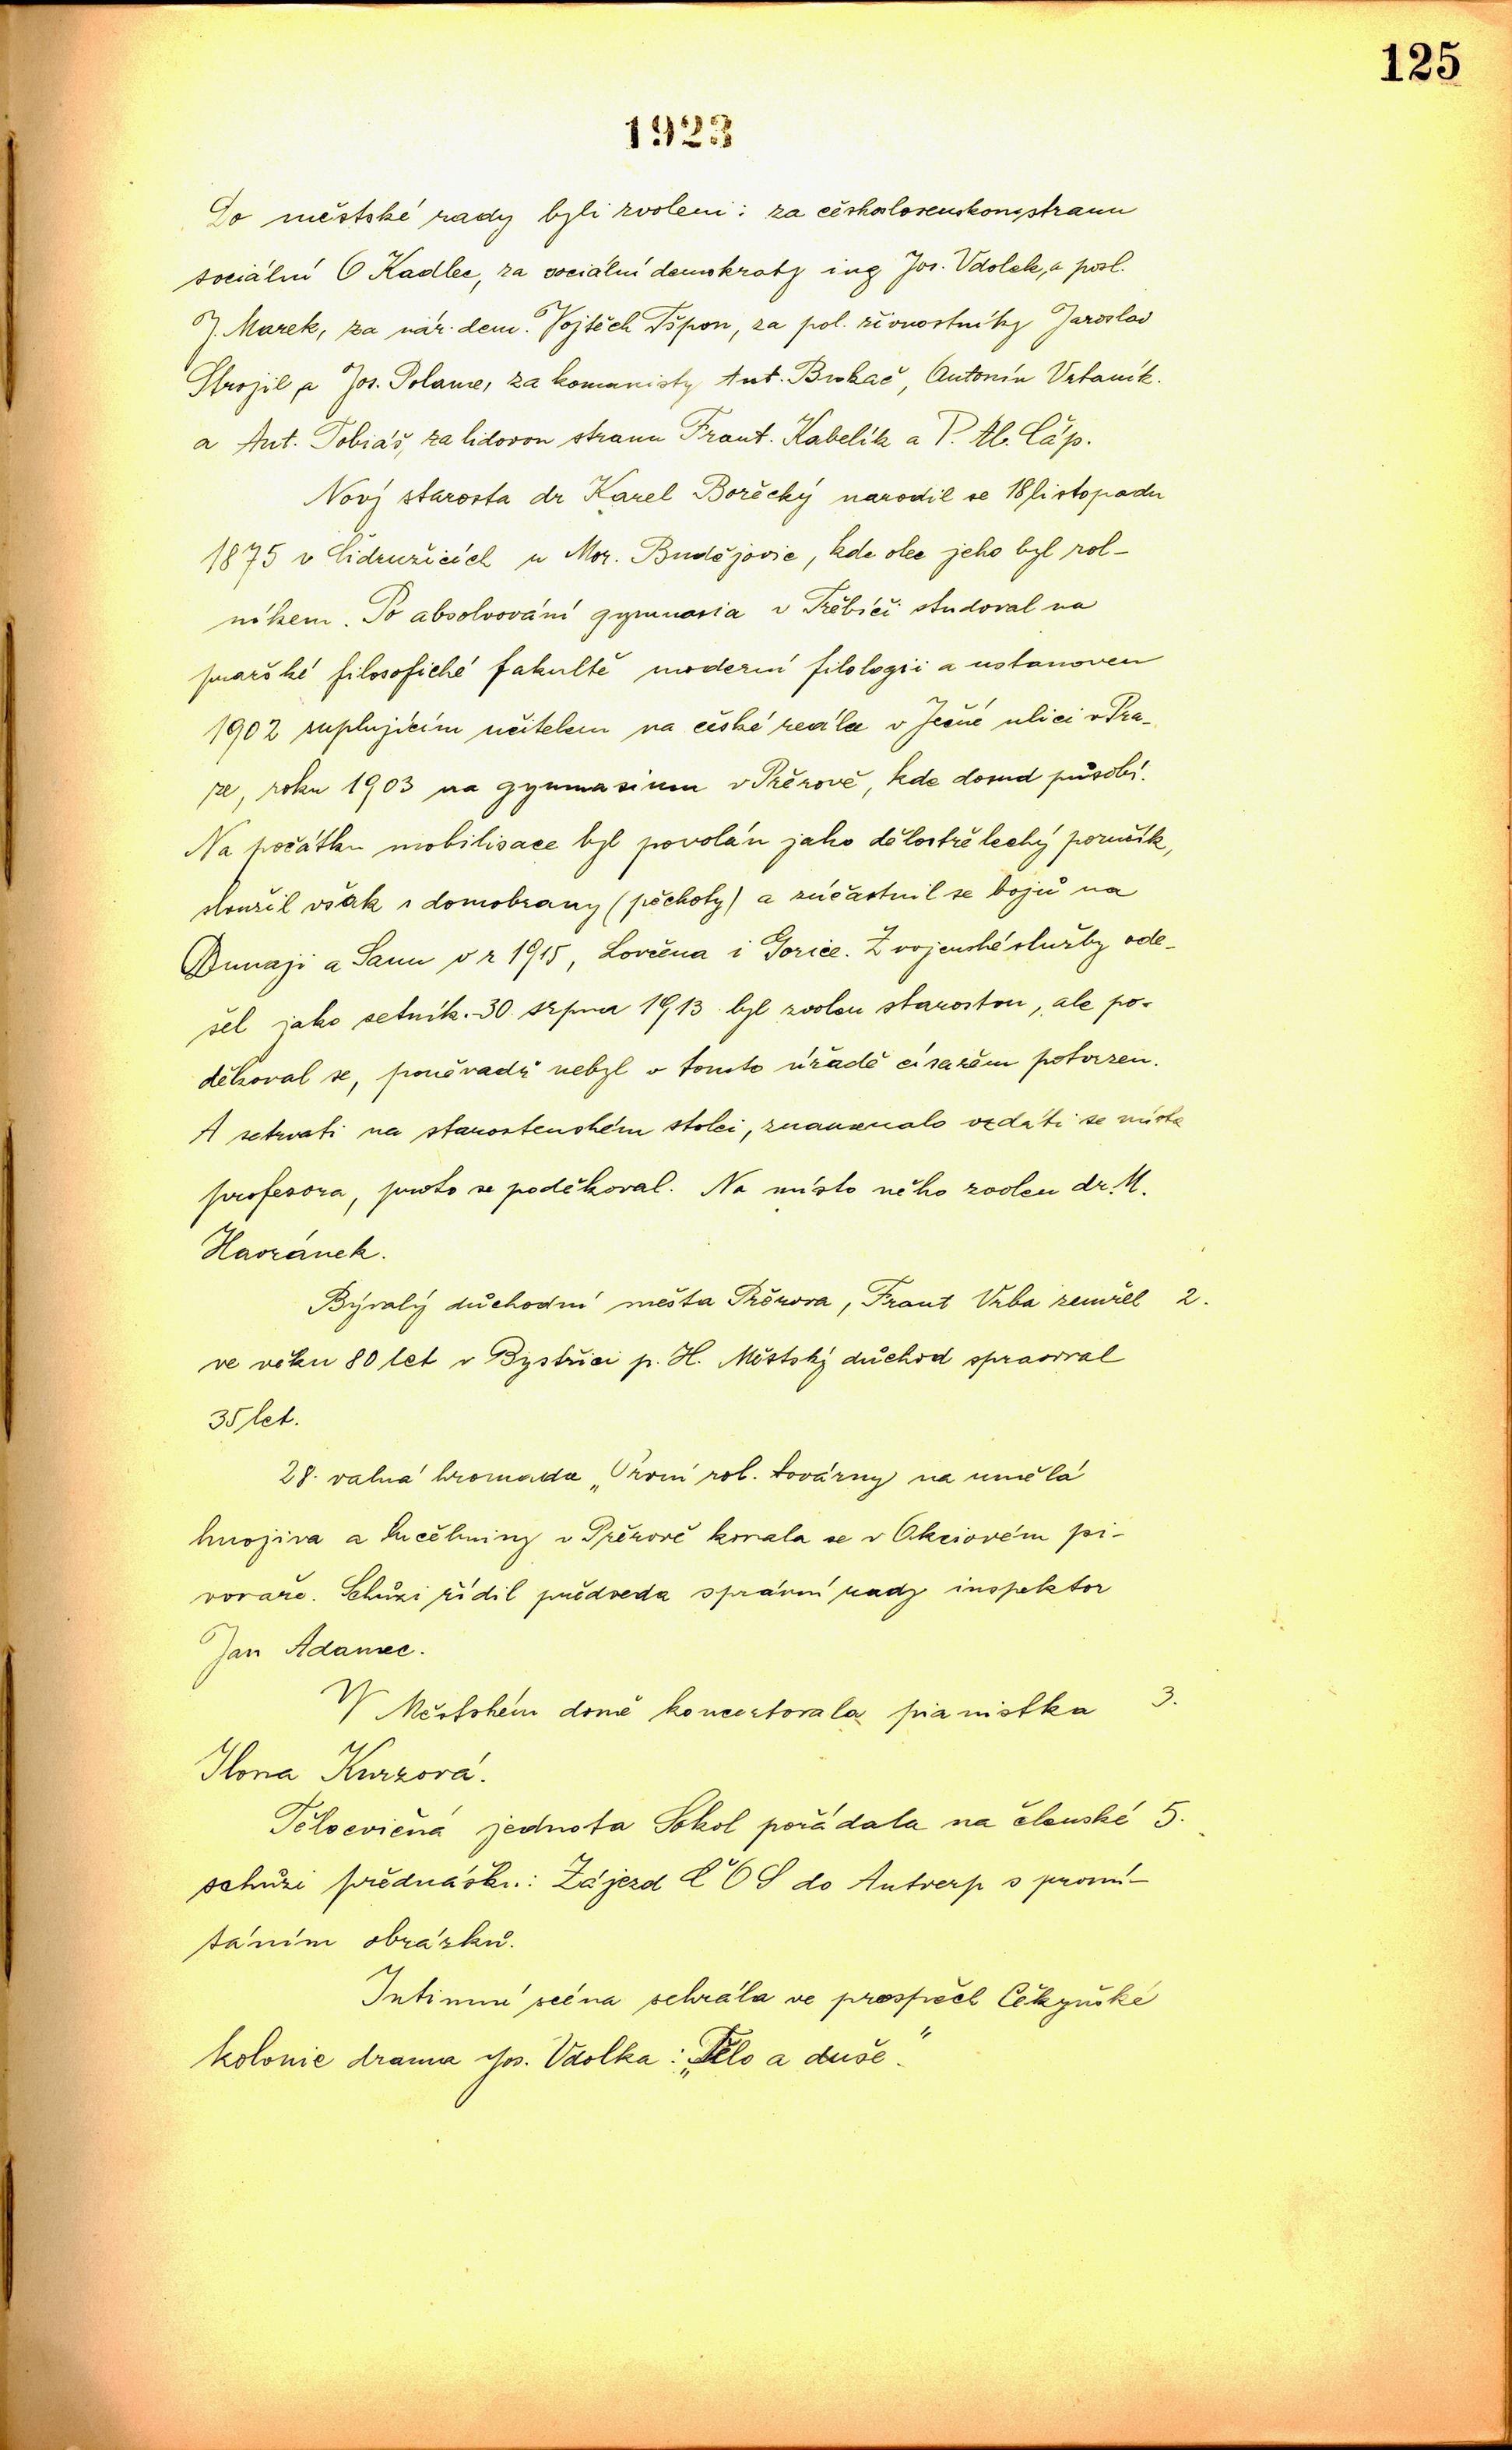 125
1923
Do městské rady byli zvoleni: za československou stranu
sociální O Kadlec, za sociální demokraty ing Jos. Vdolek, a posl.
J. Marek, za nár. dem. Vojtěch Tšpon, za pol. živnostníky Jaroslav
Strojil a Jos. Polanc, za komunisty Ant. Brokač, Antonín Vrtaník.
a Ant. Tobiáš, za lidovou stranu Frant. Kabelík a P. Al. Čáp.
Nový starosta dr Karel Borěcký narodil se 18 listopadu
1875 v Čidružicích u Mor. Budějovic, kde otec jeho byl rol-
níkem. Po absolvování gymnasia v Třebíči studoval na
pražské filosofické fakultě moderní filologii a ustanoven
1902 suplujícím učitelem na české reálce v Ječné ulici v Pra-
ze, roku 1903 na gymnasium v Přerově, kde dosud působí.
Na počátku mobilisace byl povolán jako dělostřelecký poručík,
sloužil však u domobrany (pěchoty) a zúčastnil se bojů na
Dunaji a Sanu v r 1915, Lovčena i Gorice. Z vojenské služby ode-
šel jako setník. - 30. srpna 1913 byl zvolen starostou, ale po-
děkoval se, poněvadž nebyl v tomto úřadě císařem potvrzen.
A setrvati na starostenském stolci, znamenalo vzdáti se místa
profesora, proto se poděkoval. Na místo něho zvolen dr. M.
Havránek.
Bývalý důchodní města Přerova, Frant Vrba zemřel 2.
ve věku 80 let v Bystřici p. H. Městský důchod spravoval
35 let.
28. valná hromada „První rol. továrny na umělá
hnojiva a lučebniny v Přerově konala se v Akciovém pi-
vovaře. Schůzi řídil předseda správní rady inspektor
Jan Adamec.
V Městském domě koncertovala pianistka 3.
Ilona Kurzová.
Tělocvičná jednota Sokol pořádala na členské 5.
schůzi přednášku: Zájezd ČOS do Antverp s promí-
táním obrázků.
Intimní scéna sehrála ve prospěch Čekyňské
kolonie drama Jos. Vdolka: „Tělo a duše".